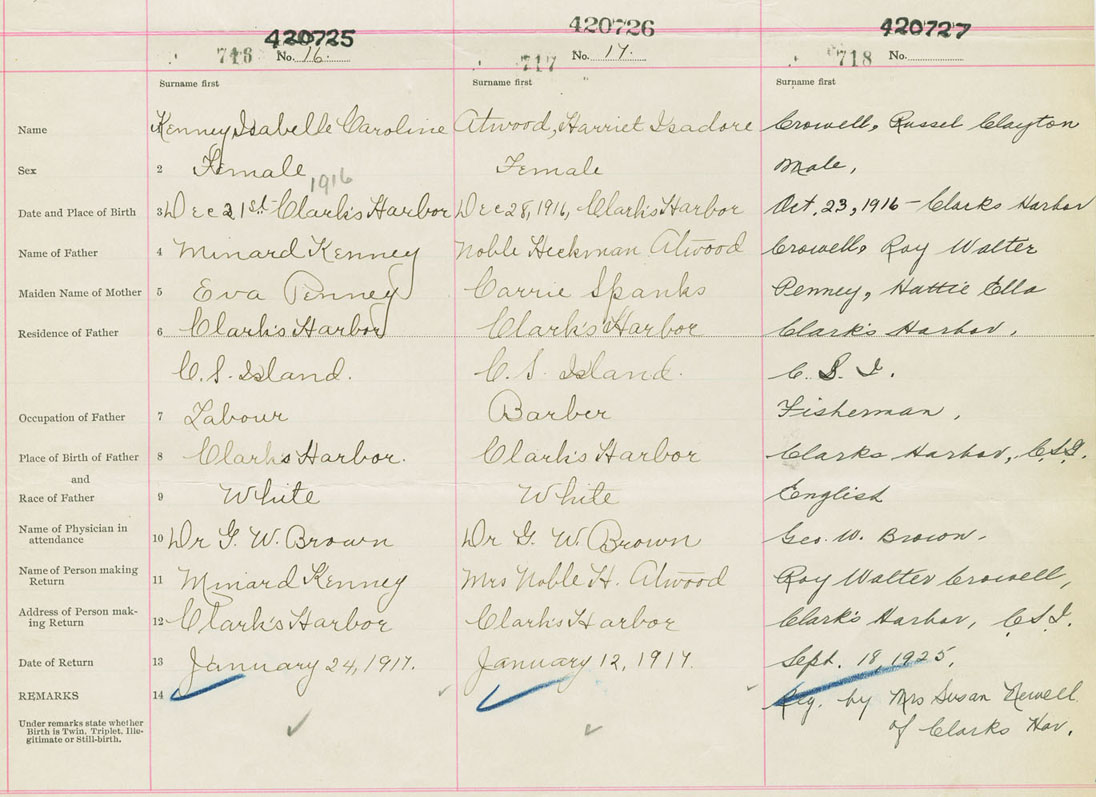 420725 420726 420727
716 No. 16. 717 No. 17. 718 No.
Surname first Surname first Surname first
Name Kenney Isabelle Caroline Atwood, Harriet Isadore Crowell, Russel Clayton
Sex 2 Female Female Male,
1916
Date and Place of Birth 3 Dec 21st - Clark's Harbor Dec 28, 1916, Clark's Harbor Oct. 23, 1916 - Clarks Harbor
Name of Father 4 Minard Kenney Noble Heckman Atwood Crowell, Roy Walter
Maiden Name of Mother 5 Eva Penney Carrie Spanks Penney, Hattie Ella
Residence of Father 6 Clark's Harbor Clark's Harbor Clark's Harbor,
C. S. Island. C. S. Island. C. S. I.
Occupation of Father 7 Labour Barber Fisherman,
Place of Birth of Father 8 Clark's Harbor. Clark's Harbor Clarks Harbor, C.S.I.
and
Race of Father 9 White White English
Name of Physician in
attendance 10 Dr G. W. Brown Dr G. W. Brown Geo. W. Brown.
Name of Person making
Return 11 Minard Kenney Mrs Noble H. Atwood Roy Walter Crowell,
Address of Person mak-
ing Return 12 Clark's Harbor Clark's Harbor Clark's Harbor, C.S.I.
Date of Return 13 January 24, 1917. January 12, 1917. Sept. 18, 1925,
REMARKS 14 Reg. by Mrs Susan Newell
Under remarks state whether
Birth is Twin, Triplet, Ille-
gitimate or Still-birth. of Clarks Har.